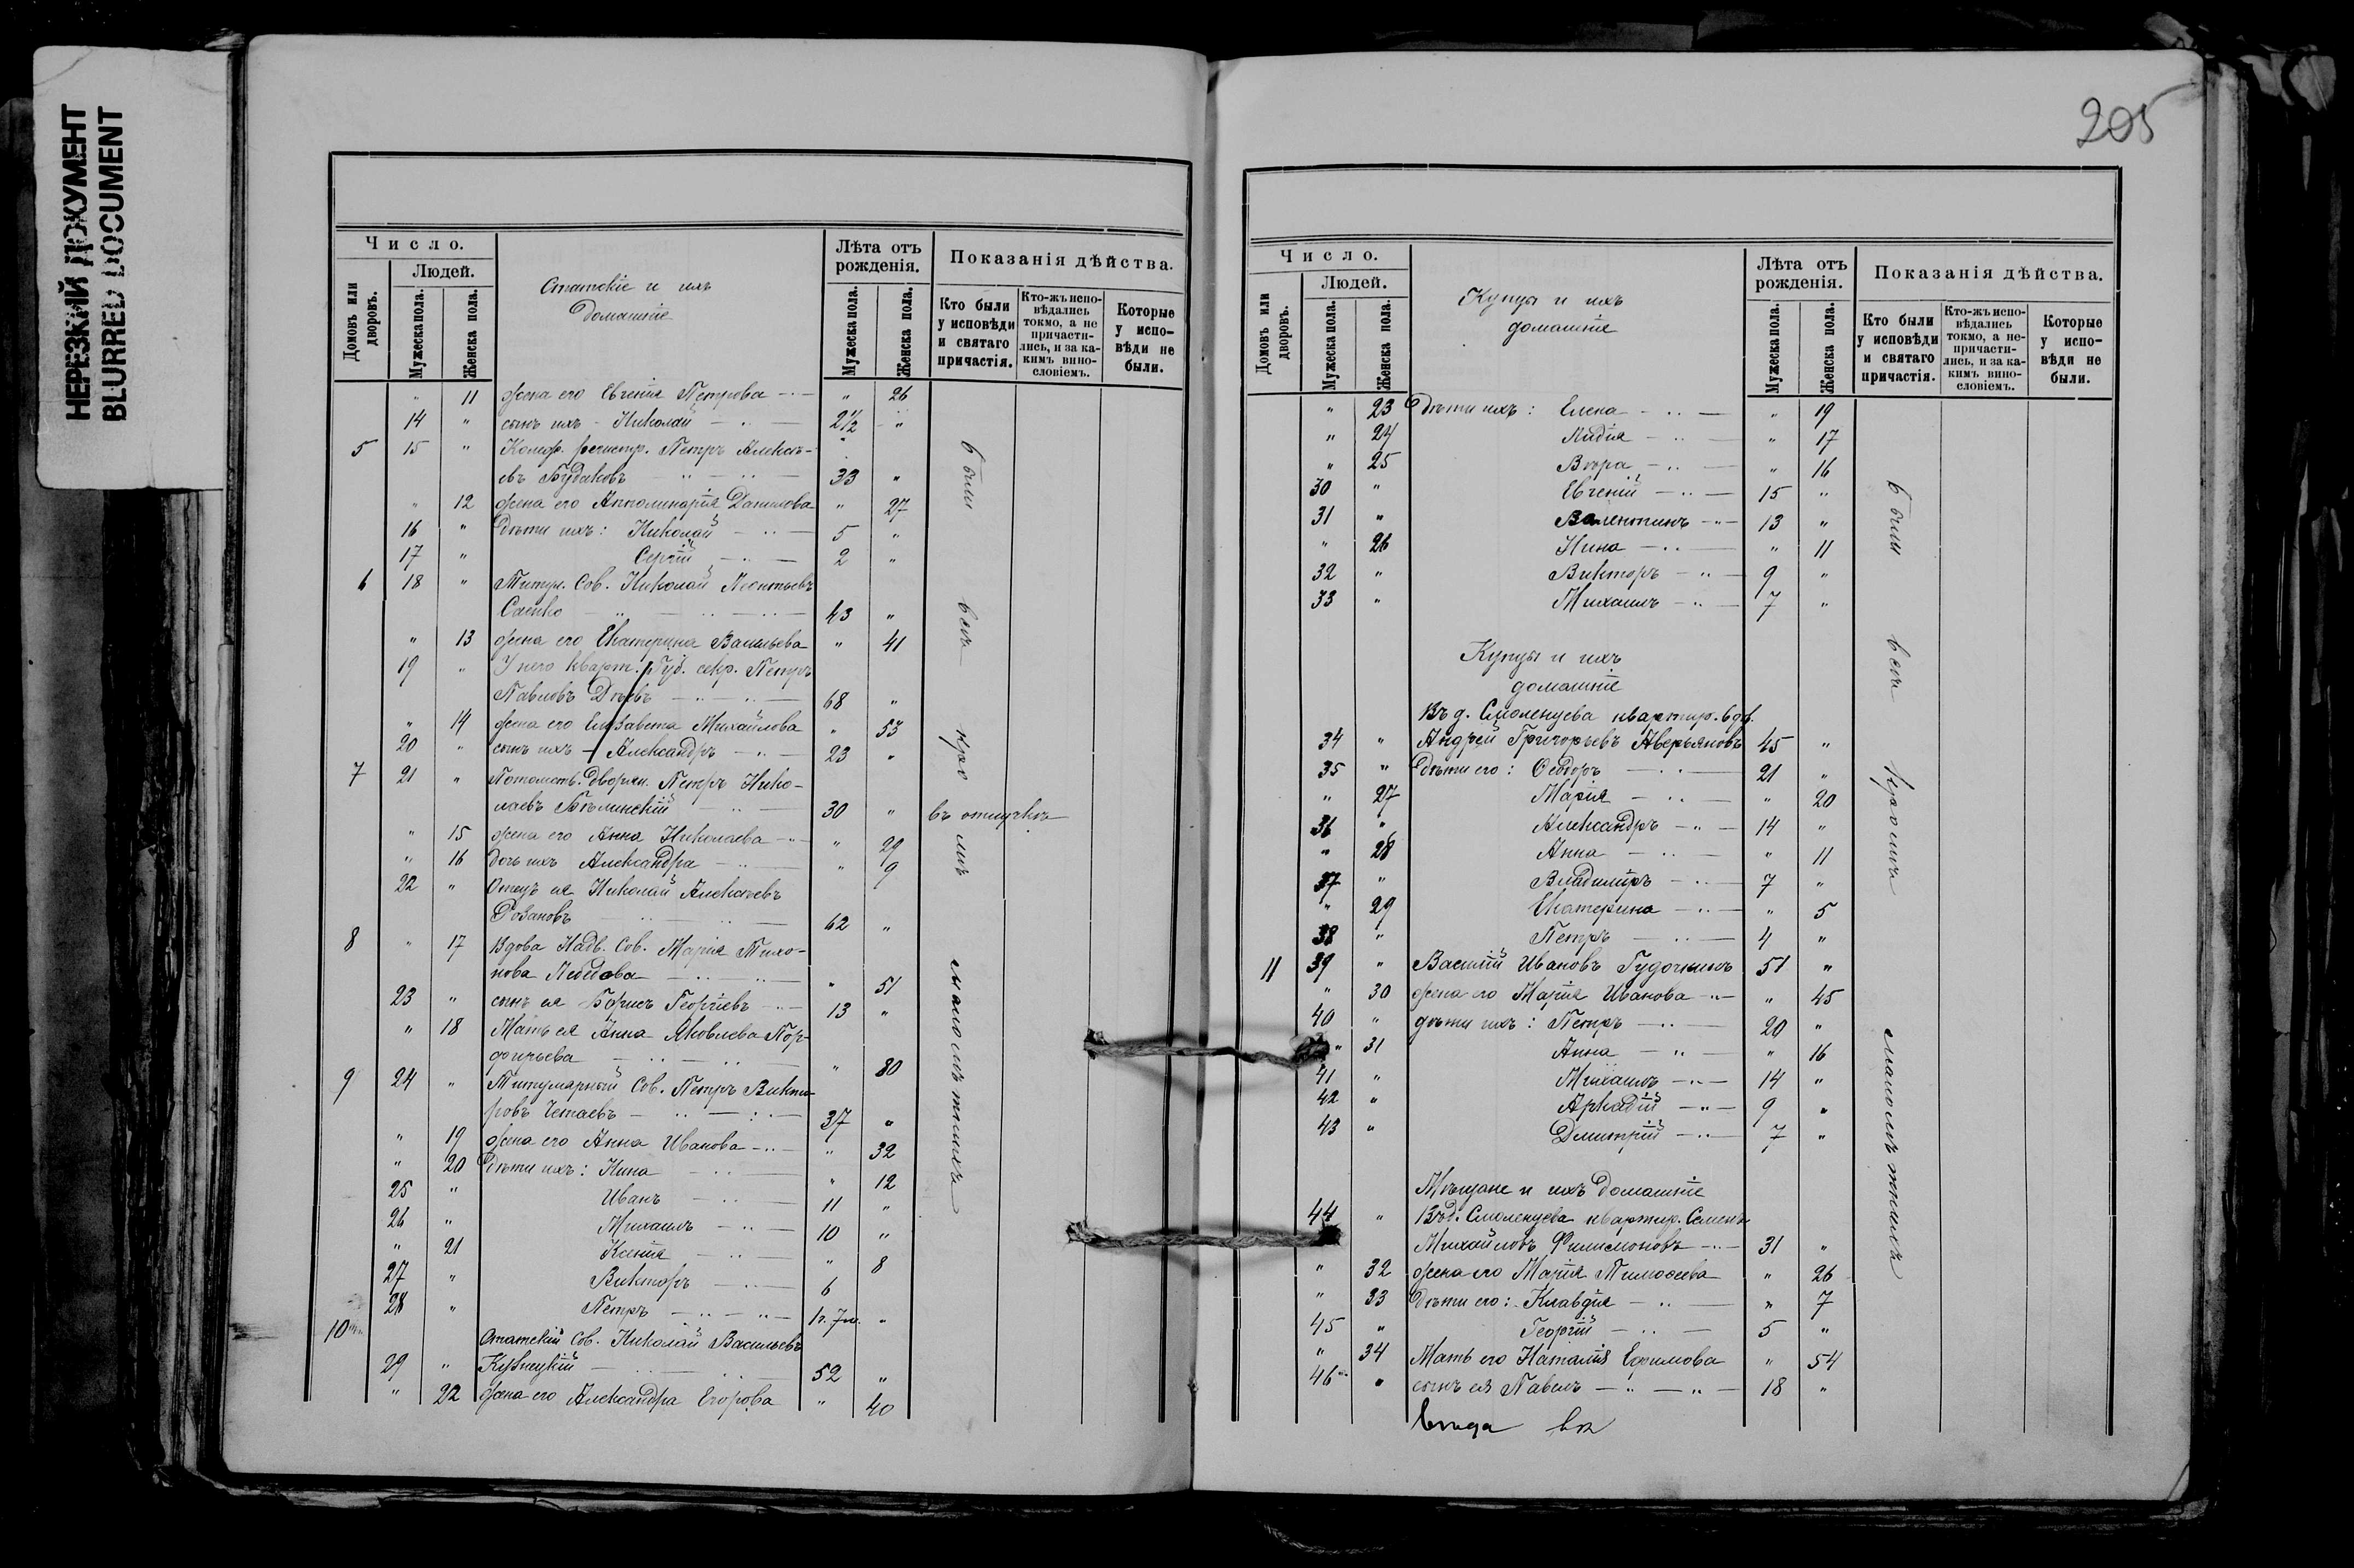 НЕРЕЗКИЙ ДОКУМЕНТ
BLURRED DOCUMENT
Число.
Людей.
Домовъ или дворовъ.
Мужеска пола.
Женска пола.
Статскіе и ихъ
домашніе
Лѣта отъ рожденія.
Мужеска пола.
Женска пола.
Показанія дѣйства.
Кто были у исповѣди и святаго причастія.
Кто-жъ исповѣдались токмо, а не причастились, и за какимъ винословіемъ.
Которые у исповѣди не были.
" 11 жена его Евгенія Петрова " 26
14 " сынъ ихъ - Николай 2½ "
5 15 " Коллеж. регистр. Петръ Алексѣ-
евъ Будаковъ 33 "
" 12 жена его Апполинарія Данилова " 27
16 " Дѣти ихъ: Николай 5 "
17 " Сергій 2 "
6 18 " Титул. Сов. Николай Леонтьевъ
Саенко 43 "
" 13 жена его Екатерина Васильева " 41
19 " У него кварт. Губ. секр. Петръ
Павловъ 68 "
" 14 жена его Елизавета Михайлова " 53
20 " сынъ ихъ - Александръ 23 "
7 21 " Потомств. Дворян. Петръ Нико-
лаевъ Бѣлинскій 30 " въ отлучкѣ
" 15 жена его Анна Николаева " 29
" 16 дочь ихъ Александра " 9
22 " Отецъ ея Николай Алексѣевъ
Розановъ 62 "
8 " 17 Вдова Надв. Сов. Марія Тихо-
нова " 51
23 " сынъ ея Борисъ Георгіевъ 13 "
" 18 Мать ея Анна Яковлева Пор-
фирьева " 80
9 24 " Титулярный Сов. Петръ Викто-
ровъ Четаевъ 37 "
" 19 жена его Анна Иванова " 32
" 20 Дѣти ихъ: Нина " 12
25 " Иванъ 11 "
26 " Михаилъ 10 "
" 21 Ксенія " 8
27 " Викторъ 6
28 " Петръ 1 г. 7 м. "
10 Статскій Сов. Николай Васильевъ
29 " Кузнецкій 52 "
" 22 жена его Александра Егорова " 40
были всѣ кромѣ малолѣтнихъ
205
Число.
Людей.
Домовъ или дворовъ.
Мужеска пола.
Женска пола.
Купцы и ихъ
домашніе
Лѣта отъ рожденія.
Мужеска пола.
Женска пола.
Показанія дѣйства.
Кто были у исповѣди и святаго причастія.
Кто-жъ исповѣдались токмо, а не причастились, и за какимъ винословіемъ.
Которые у исповѣди не были.
" 23 Дѣти ихъ: Елена " 19
" 24 Лидія " 17
" 25 Вѣра " 16
30 " Евгеній 15 "
31 " Валентинъ 13 "
" 26 Нина " 11
32 " Викторъ 9 "
33 " Михаилъ 7 "
Купцы и ихъ
домашніе
Въ д. Смоленцева квартир. вдв.
34 " Андрей Григорьевъ Аверьяновъ 45 "
35 " Дѣти его: Ѳеодоръ 21 "
" 27 Марія " 20
36 " Александръ 14 "
" 28 Анна " 11
37 " Владиміръ 7 "
" 29 Екатерина " 5
38 " Петръ 4 "
11 39 " Василій Ивановъ Гудочкинъ 51 "
" 30 жена его Марія Иванова " 45
40 " дѣти ихъ: Петръ 20 "
" 31 Анна " 16
41 " Михаилъ 14 "
42 " Аркадій 9 "
43 " Дмитрій 7 "
Мѣщане и ихъ домашніе
44 " Въ д. Смоленцева квартир. Семенъ
Михайловъ Филимоновъ 31 "
" 32 жена его Марія Тимоѳеева " 26
" 33 Дѣти его: Клавдія " 7
45 " Георгій 5 "
" 34 Мать его Наталія Ефимова " 54
46 " сынъ ея Павелъ 18 "
были всѣ кромѣ малолѣтнихъ